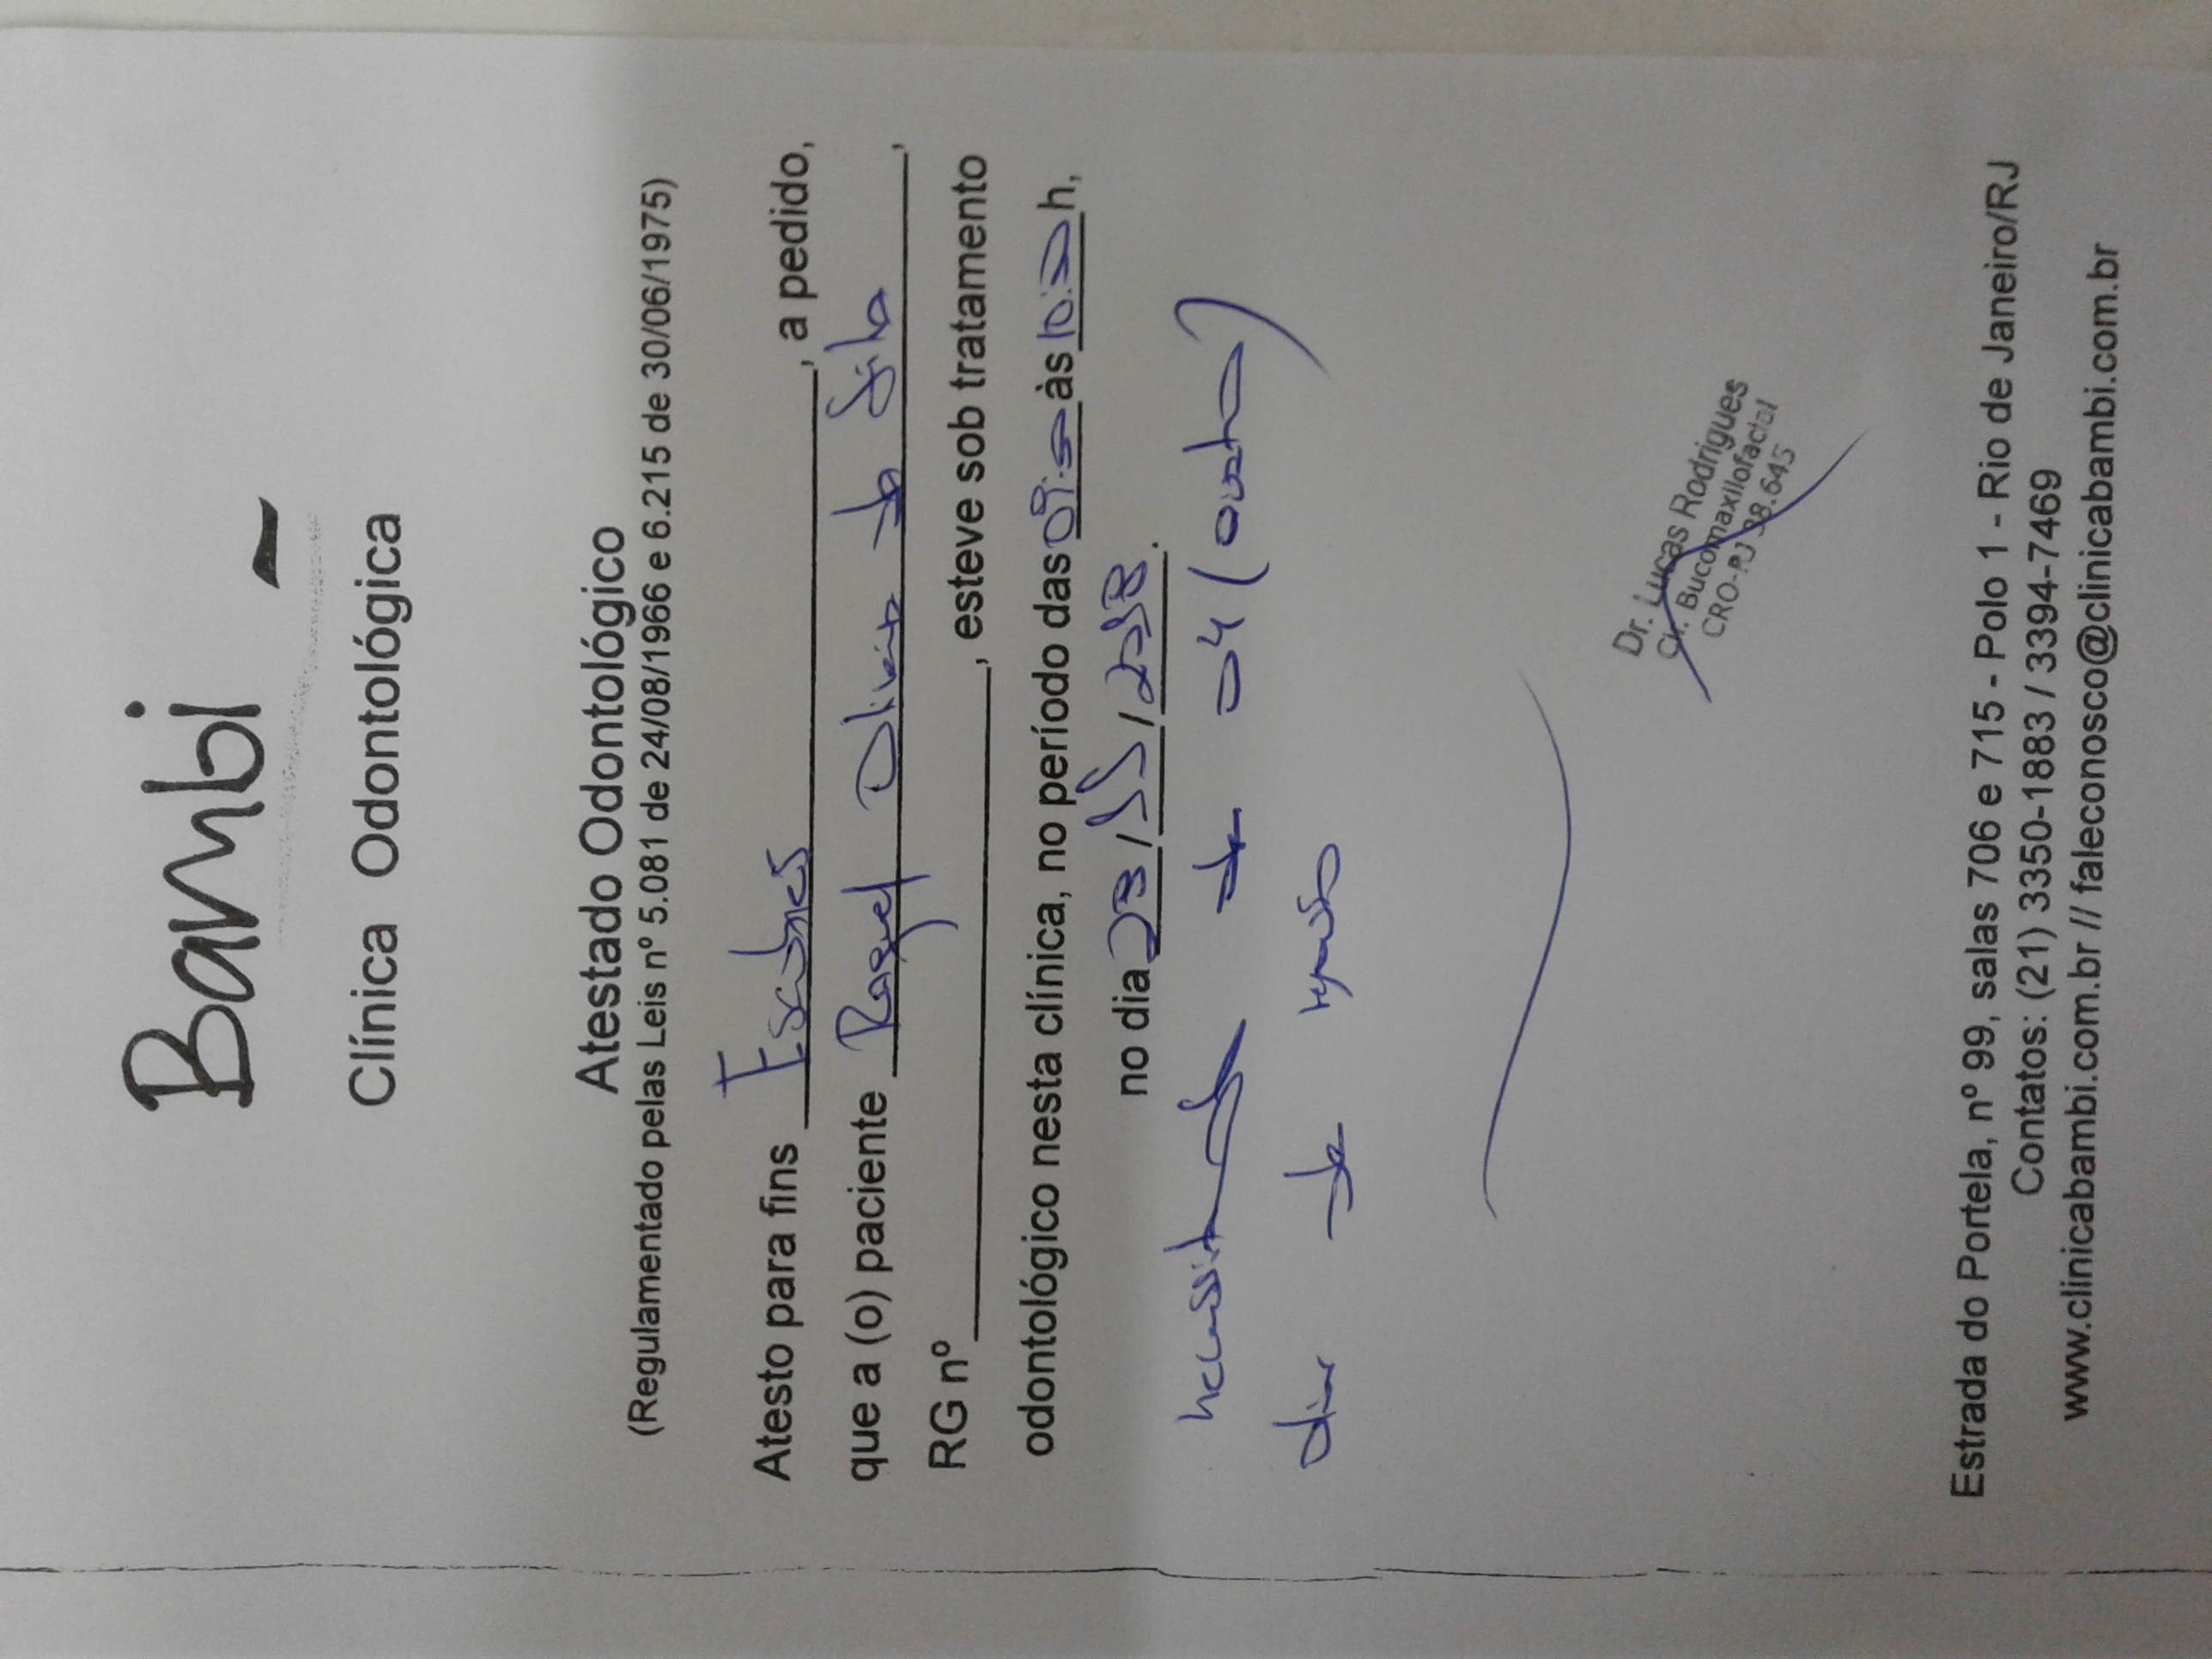 Bambi
Clínica Odontológica
Atestado Odontológico
(Regulamentado pelas Leis nº 5.081 de 24/08/1966 e 6.215 de 30/06/1975)
Atesto para fins Escolares, a pedido,
que a (o) paciente Raquel Oliveira da Silva,
RG nº , esteve sob tratamento
odontológico nesta clínica, no período das às h,
no dia
necessitando de 04 (quatro)
dias de repouso
Dr. Lucas Rodrigues
Cir. Bucomaxilofacial
CRO-RJ 38.645
Estrada do Portela, nº 99, salas 706 e 715 - Polo 1 - Rio de Janeiro/RJ
Contatos: (21) 3350-1883 / 3394-7469
www.clinicabambi.com.br // faleconosco@clinicabambi.com.br